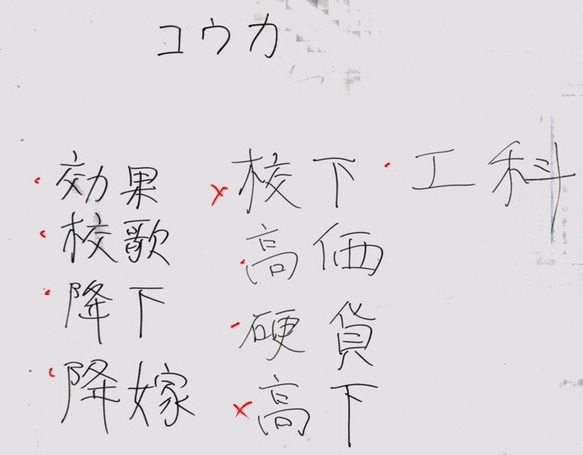 コウカ
効果
校歌
降下
降嫁
校下
高価
硬貨
高下
工科